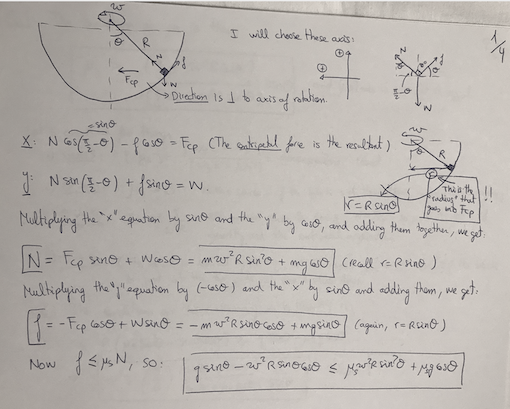 1/4
ω
θ
R
N
f
F_cp
W
Direction is ⊥ to axis of rotation.
I will choose these axis:
+
+
N
f
θ
θ
π/2 - θ
W
= sinθ
X: N cos(π/2 - θ) - f cosθ = F_cp (The centripetal force is the resultant)
y: N sin(π/2 - θ) + f sinθ = W.
ω
θ
R
r = R sinθ
This is the "radius" that goes into F_cp !!
Multiplying the "x" equation by sinθ and the "y" by cosθ, and adding them together, we get:
N = F_cp sinθ + W cosθ = mω²R sin²θ + mg cosθ (recall r = R sinθ)
Multiplying the "y" equation by (-cosθ) and the "x" by sinθ and adding them, we get:
f = -F_cp cosθ + W sinθ = -mω²R sinθ cosθ + mg sinθ (again, r = R sinθ)
Now f ≤ μ_s N, so: g sinθ - ω²R sinθ cosθ ≤ μ_s ω²R sin²θ + μ_s g cosθ